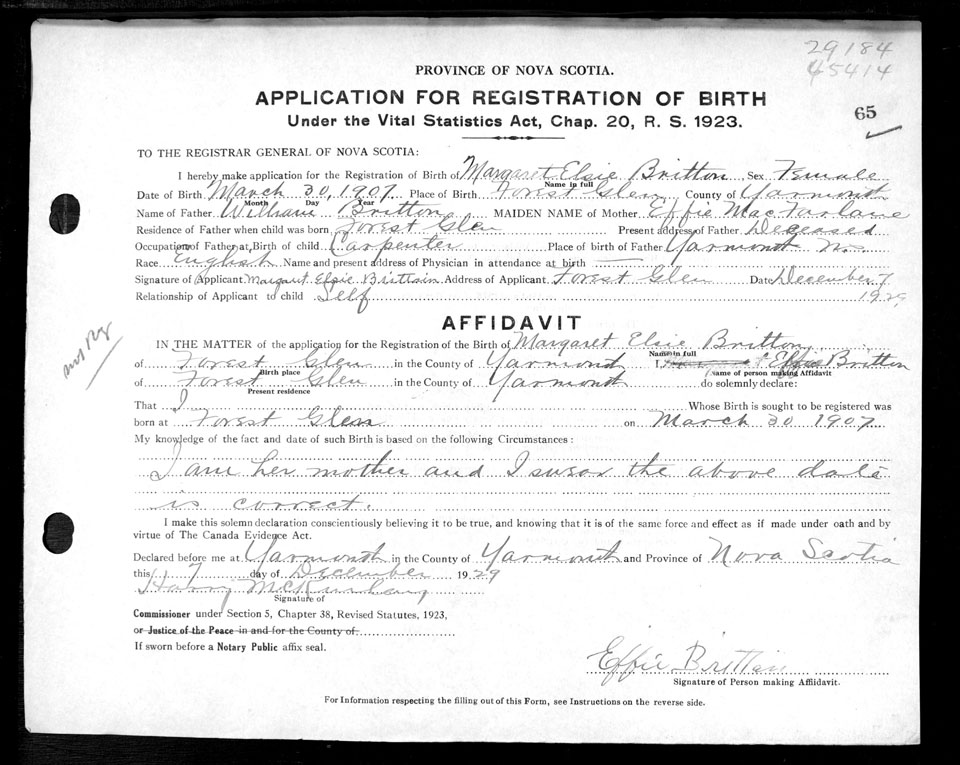 29184
45414
PROVINCE OF NOVA SCOTIA.
65
APPLICATION FOR REGISTRATION OF BIRTH
Under the Vital Statistics Act, Chap. 20, R. S. 1923.
TO THE REGISTRAR GENERAL OF NOVA SCOTIA:
I hereby make application for the Registration of Birth of Margaret Elsie Britton Sex Female
Name in full
Date of Birth March 30, 1907. Place of Birth Forest Glen County of Yarmouth
Month Day Year
Name of Father William Britton MAIDEN NAME of Mother Effie MacFarlane
Residence of Father when child was born Forest Glen Present address of Father Deceased
Occupation of Father at Birth of child Carpenter Place of birth of Father Yarmouth N.S.
Race English Name and present address of Physician in attendance at birth —
Signature of Applicant Margaret Elsie Brittain Address of Applicant Forest Glen Date December 7
Relationship of Applicant to child Self 1929
AFFIDAVIT
IN THE MATTER of the application for the Registration of the Birth of Margaret Elsie Britton
Name in full
of Forest Glen in the County of Yarmouth I, Effie Britton
Birth place Name of person making Affidavit
of Forest Glen in the County of Yarmouth do solemnly declare:
Present residence
That I Whose Birth is sought to be registered was
born at Forest Glen on March 30 1907
My knowledge of the fact and date of such Birth is based on the following Circumstances:
I am her mother and I swear the above date
is correct.
I make this solemn declaration conscientiously believing it to be true, and knowing that it is of the same force and effect as if made under oath and by
virtue of The Canada Evidence Act.
Declared before me at Yarmouth in the County of Yarmouth and Province of Nova Scotia
this 7 day of December 1929
Harry
Signature of
Commissioner under Section 5, Chapter 38, Revised Statutes, 1923,
or Justice of the Peace in and for the County of
If sworn before a Notary Public affix seal.
Effie Brittain
Signature of Person making Affidavit.
For Information respecting the filling out of this Form, see Instructions on the reverse side.